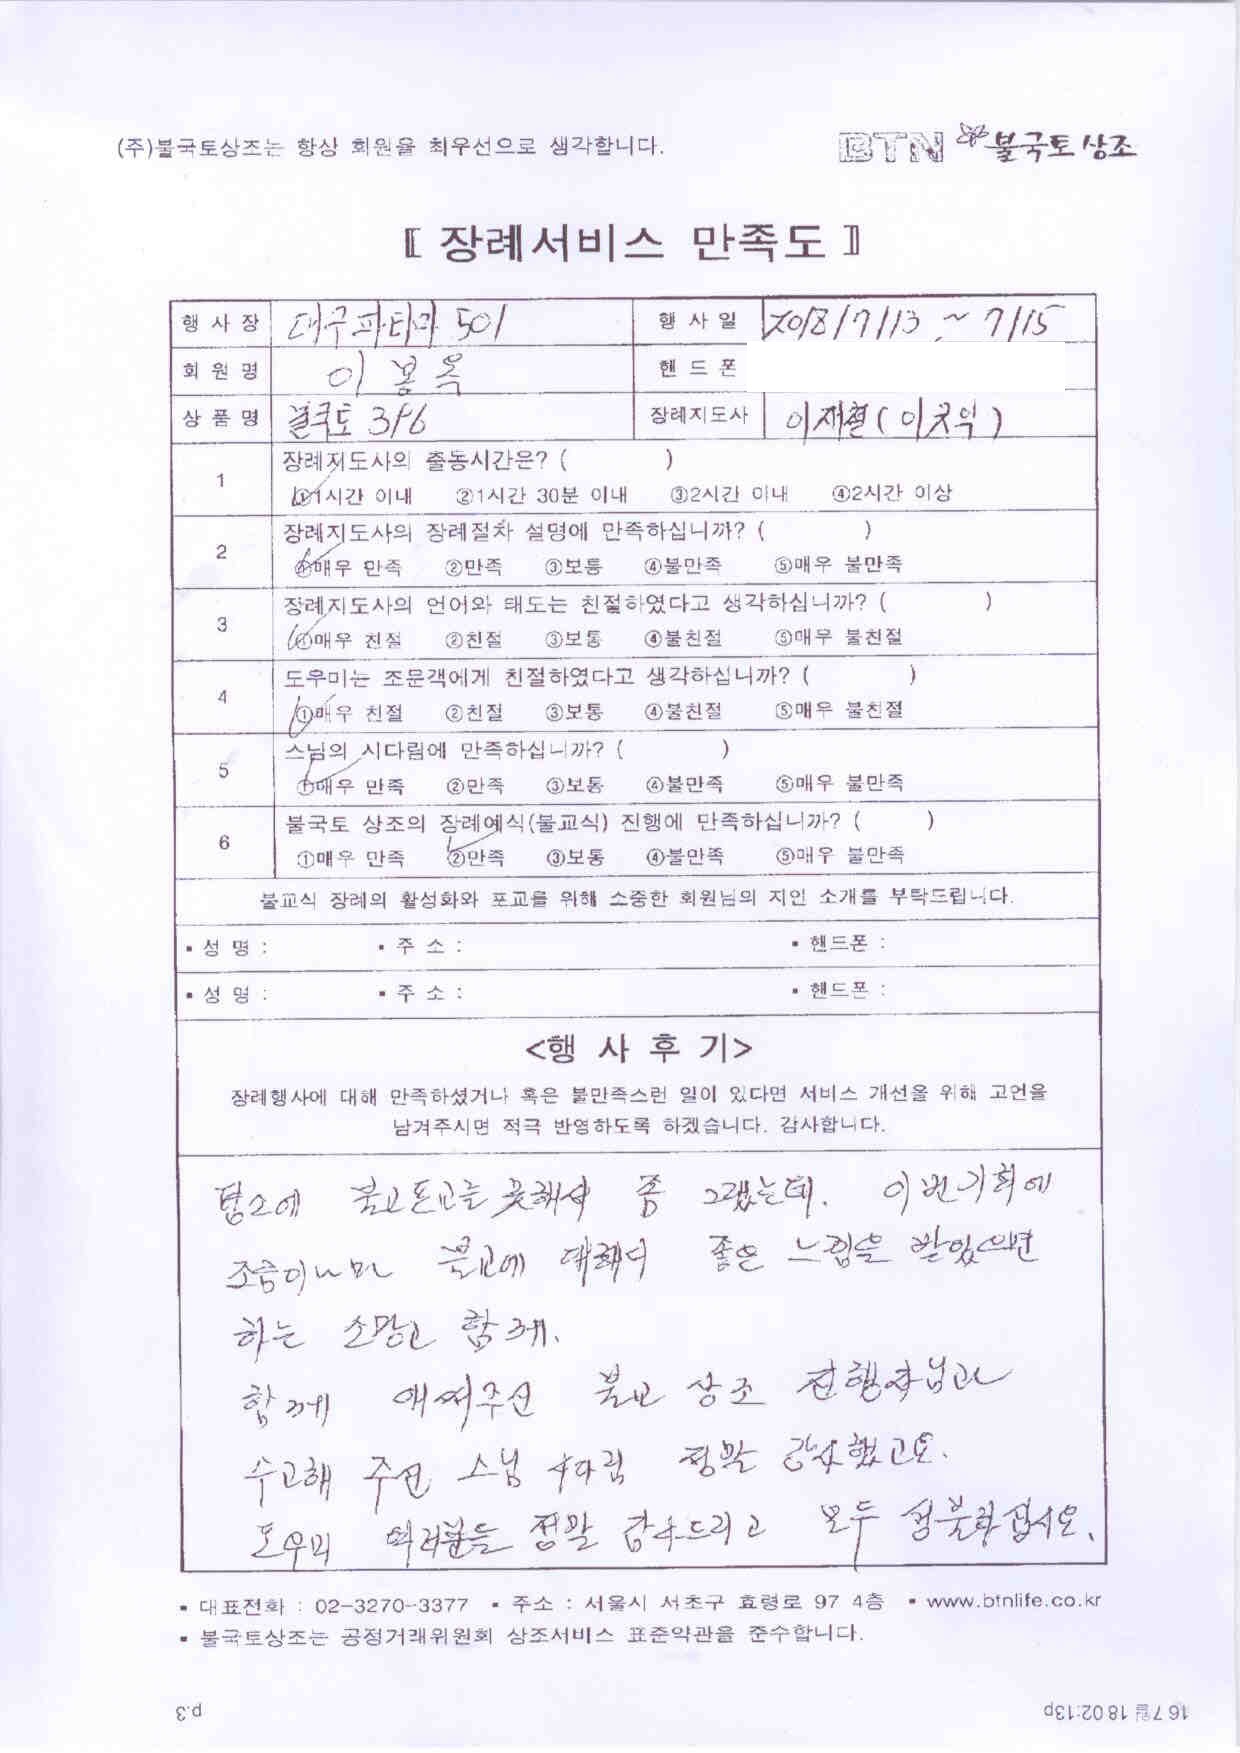 (주)불국토상조는 항상 회원을 최우선으로 생각합니다.
BTN 불국토상조
〖 장례서비스 만족도 〗
행 사 장 대구파티마 501 행 사 일 2018/7/13 ~ 7/15
회 원 명 이봉옥 핸 드 폰
상 품 명 불국토 396 장례지도사 이재철(
1 장례지도사의 출동시간은? ( )
①1시간 이내 ②1시간 30분 이내 ③2시간 이내 ④2시간 이상
2 장례지도사의 장례절차 설명에 만족하십니까? ( )
①매우 만족 ②만족 ③보통 ④불만족 ⑤매우 불만족
3 장례지도사의 언어와 태도는 친절하였다고 생각하십니까? ( )
①매우 친절 ②친절 ③보통 ④불친절 ⑤매우 불친절
4 도우미는 조문객에게 친절하였다고 생각하십니까? ( )
①매우 친절 ②친절 ③보통 ④불친절 ⑤매우 불친절
5 스님의 시다림에 만족하십니까? ( )
①매우 만족 ②만족 ③보통 ④불만족 ⑤매우 불만족
6 불국토 상조의 장례예식(불교식) 진행에 만족하십니까? ( )
①매우 만족 ②만족 ③보통 ④불만족 ⑤매우 불만족
불교식 장례의 활성화와 포교를 위해 소중한 회원님의 지인 소개를 부탁드립니다.
▪ 성 명 : ▪ 주 소 : ▪ 핸드폰 :
▪ 성 명 : ▪ 주 소 : ▪ 핸드폰 :
<행 사 후 기>
장례행사에 대해 만족하셨거나 혹은 불만족스런 일이 있다면 서비스 개선을 위해 고언을
남겨주시면 적극 반영하도록 하겠습니다. 감사합니다.
평소에 불교포교를 못해서 좀 그랬는데. 이번기회에
조금이나마 불교에 대해서 좋은 느낌을 받았으면
하는 소망과 함께.
함께 애써주신 불교 상조 진행자님과
수고해 주신 스님 시다림 정말 감사했고요.
도우미 여러분들 정말 감사드리고 모두 성불하십시오.
▪ 대표전화 : 02-3270-3377 ▪ 주소 : 서울시 서초구 효령로 97 4층 ▪ www.btnlife.co.kr
▪ 불국토상조는 공정거래위원회 상조서비스 표준약관을 준수합니다.
p.3 16 7월 18 02:13p